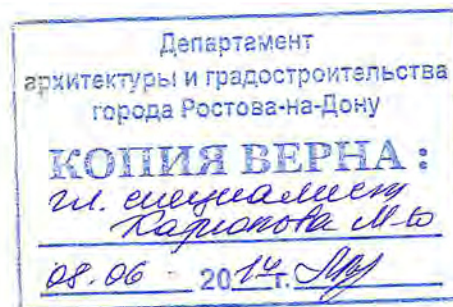 Департамент
архитектуры и градостроительства
города Ростова-на-Дону
КОПИЯ ВЕРНА :
гл. специалист
08.06 2014г.